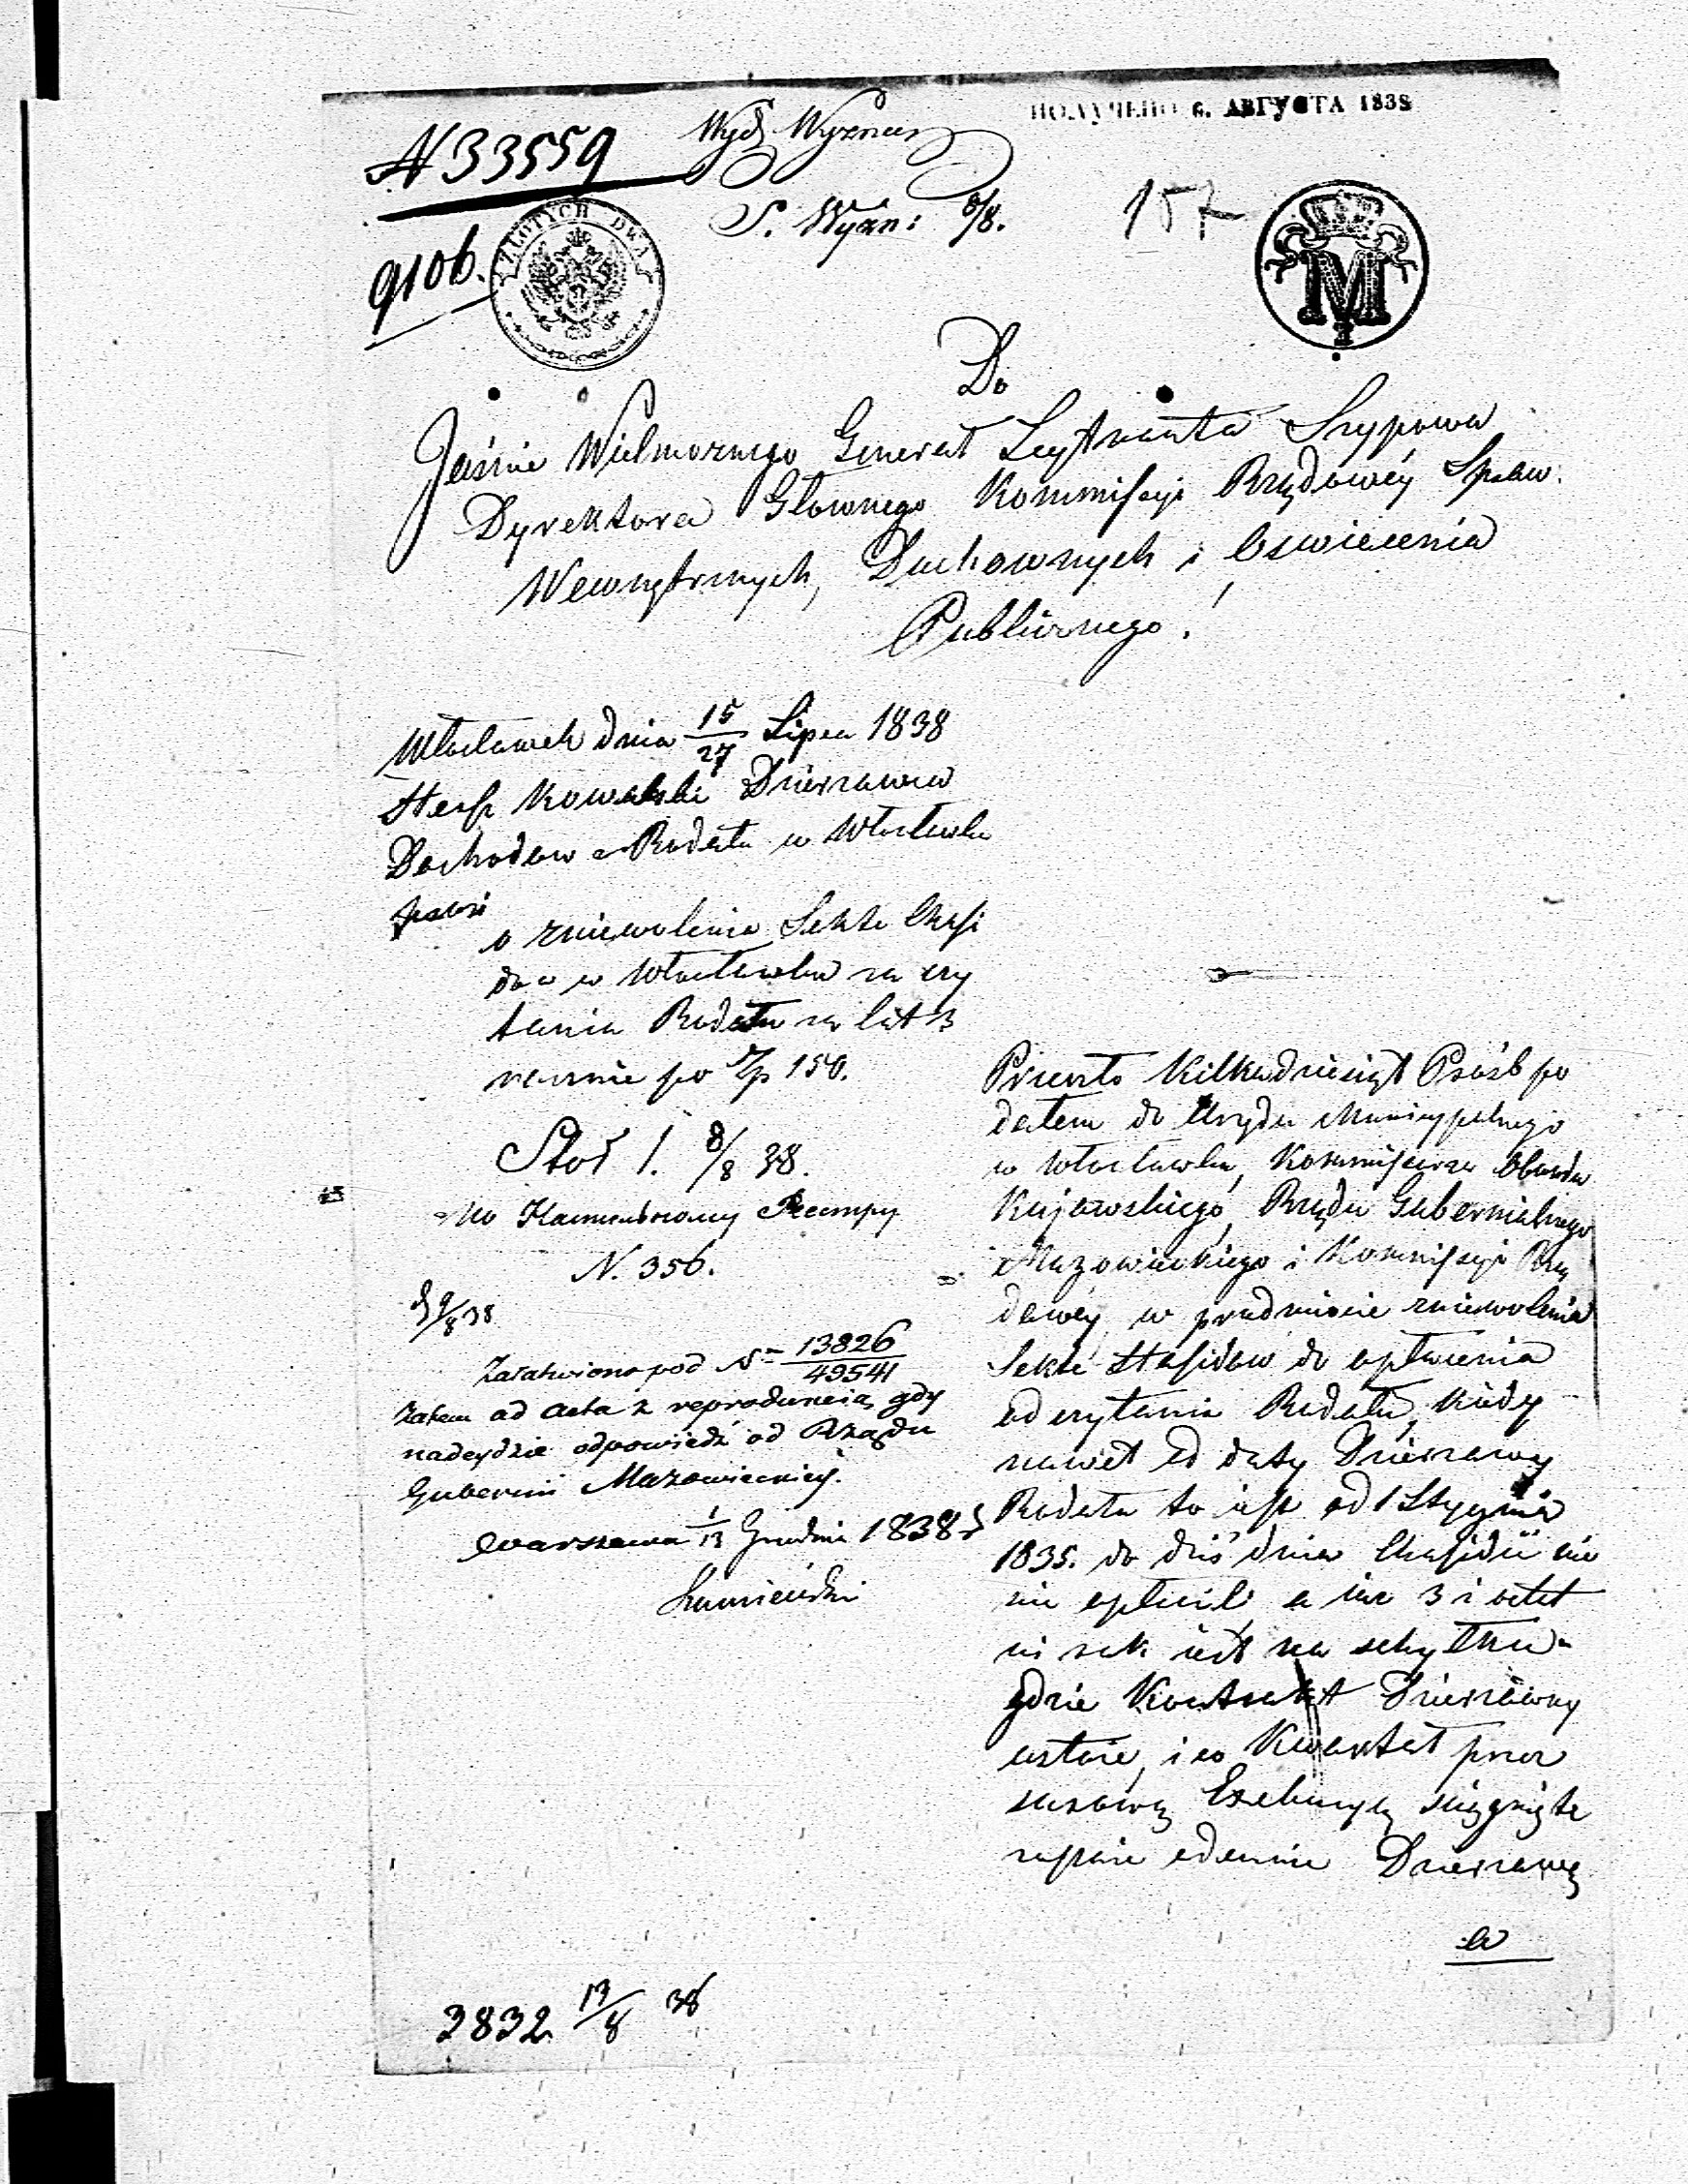 ПОЛУЧЕНО 6. АВГУСТА 1838
N 33559
Wydz Wyznan
S. Wyzn: 6/8.
157
9106.
ZŁOTYCH DWA
M
Do
Jaśnie Wielmoznego Generał Leytnanta Szypowa
Dyrektora Głownego Kommissyi Rządowéy Spraw.
Wewnętrznych, Duchownych i Oswiecenia
Publicznego.
Włocławek dnia 15/27 Lipca 1838
Hersz Kowalski Dzierzawca
Dochodow z Rodału w Włocławku
prosi
o zniewolenie Sekte Chasi
dow w Włocławku za czy
tania Rodału za lat 3
rocznie po Zp 150.
Stoł 1. 8/8 38.
N. 356.
9/8 38
Załatwiono pod N 13826/49541
Zatem ad acta z reprodukcią gdy
nadeydzie odpowiedź od Rządu
Gubernii Mazowieckiey.
Warszawa 1/13 Grudnia 1838
Przeszło Kilkadziesiąt Prośb po
dałem do Urzędu Municypalnego
w Włocławku, Kommissarza Obwodu
Kujawskiego, Rządu Gubernialnego
Mazowieckiego i Kommissyi Rzą
dowéy w przedmiocie zniewolenia
Sekte Hasidow do opłacenia
od czytania Rodału, kiedy
nawet od daty Dzierzawy
Rodału to iest od 1 Stycznia
1835. do dziś dnia Chasidii nic
nie opłacili, a iuz 3 i
rok iest na schyłku
gdzie Kontrakt Dzierzawny
ustaie, i co Kwartał przez
Exekucyą sciągnięte
odemnie Dzierzawę
w
3832 13/8 38